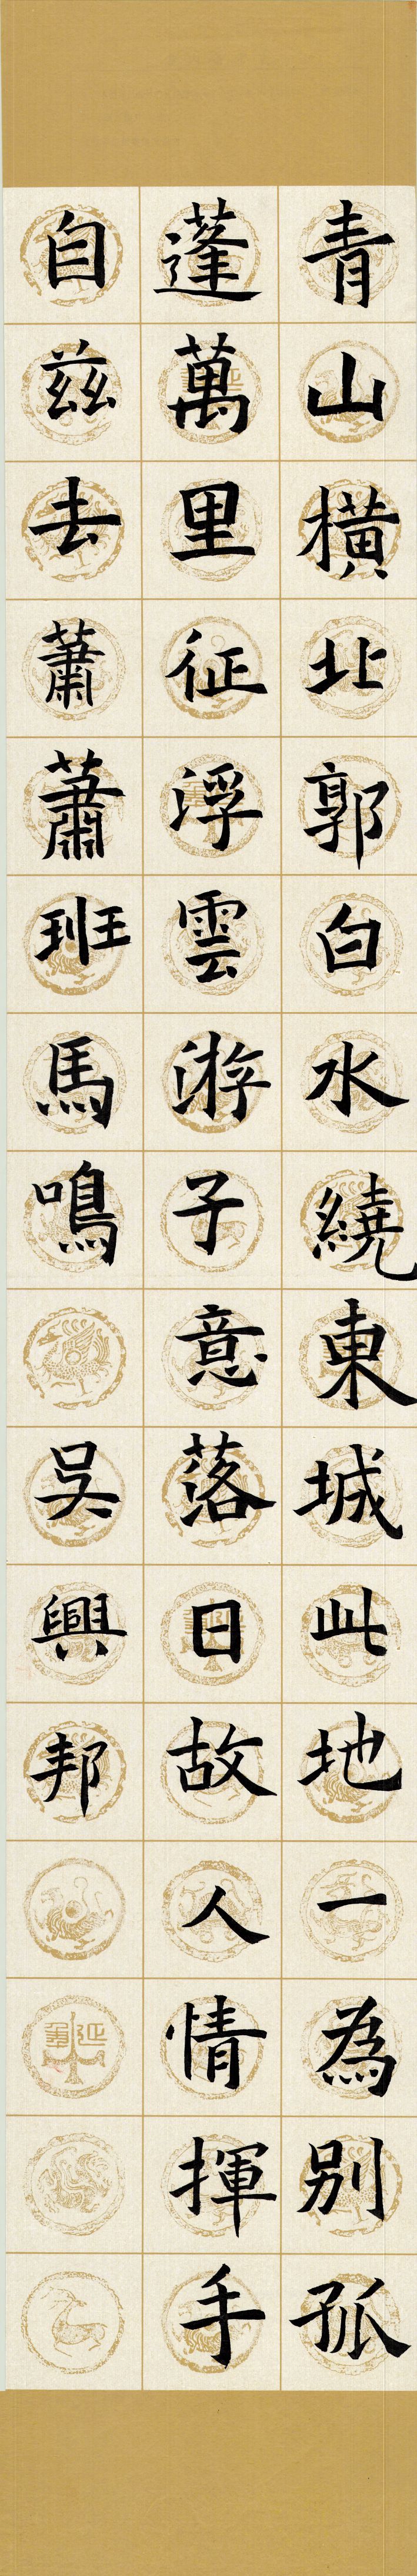 青山橫北郭白水繞東城此地一為别孤
蓬萬里征浮雲游子意落日故人情揮手
自茲去蕭蕭班馬鳴
吳興邦